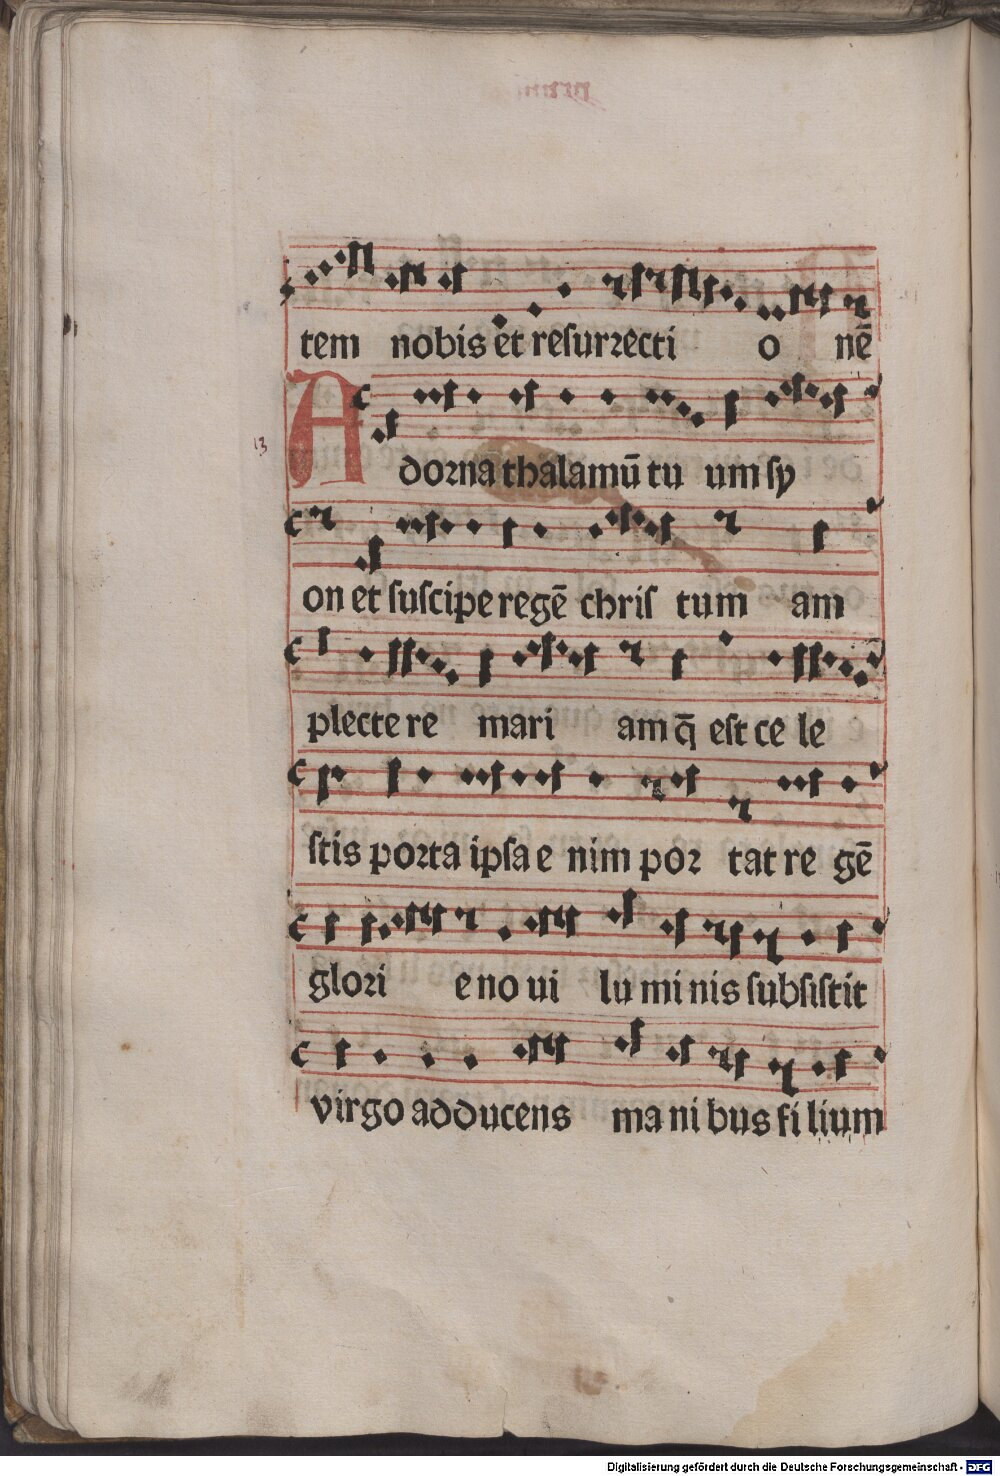 tem nobis et resurrecti o nē
13
Adorna thalamū tu um sy
on et suscipe regē chris tum am
plecte re mari am q̄ est ce le
stis porta ipsa e nim por tat re gē
glori e no ui lu mi nis subsistit
virgo adducens ma ni bus fi lium
Digitalisierung gefördert durch die Deutsche Forschungsgemeinschaft - DFG